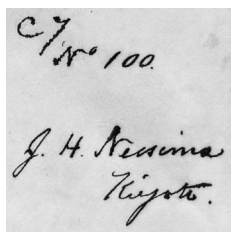 C/
No 100.
J. H. Neesima
Kiyoto.